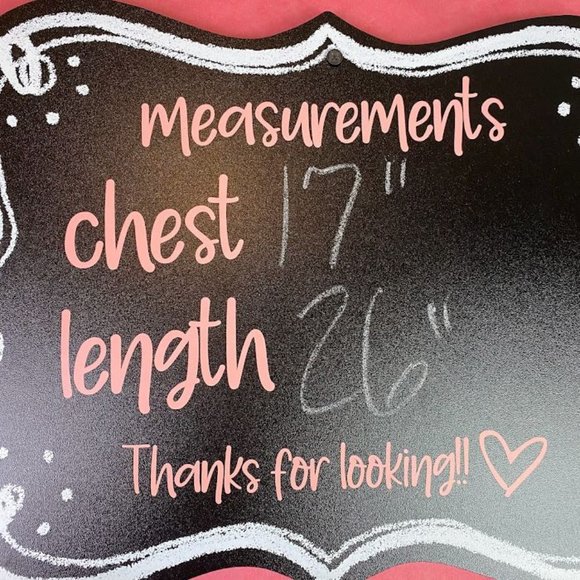 measurements
chest 17"
length 26"
Thanks for looking!!